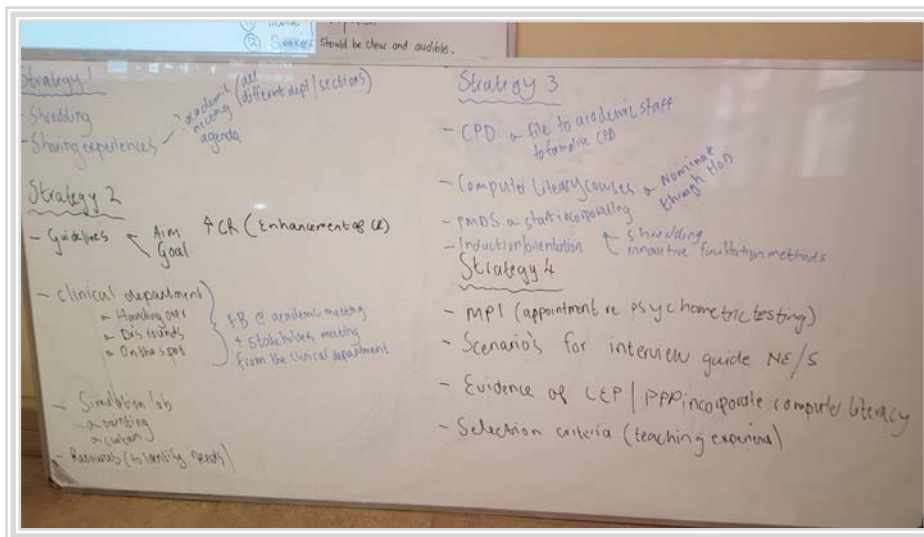 ② Speakers should be clear and audible.
Strategy 1
- Shredding
- Sharing experiences
academic meeting agenda
(all different dept/sections)
Strategy 2
- Guidelines
Aim
Goal
↑ CR (Enhancement of CR)
- Clinical department
Handing over
Drs rounds
On the spot
FB @ academic meeting
+ stakeholders meeting
from the clinical department
- Simulation lab
- Resources (to identify needs)
Strategy 3
- CPD file to academic staff
to formalise CPD
- Computer literacy courses
Nominate through HOD
- PMDS staff incorporating
- Induction/orientation
shredding
innovative facilitation methods
Strategy 4
- MPI (appointment re psychometric testing)
- Scenario's for interview guide NE/S
- Evidence of LEP / PPP incorporate computer literacy
- Selection criteria (teaching experience)